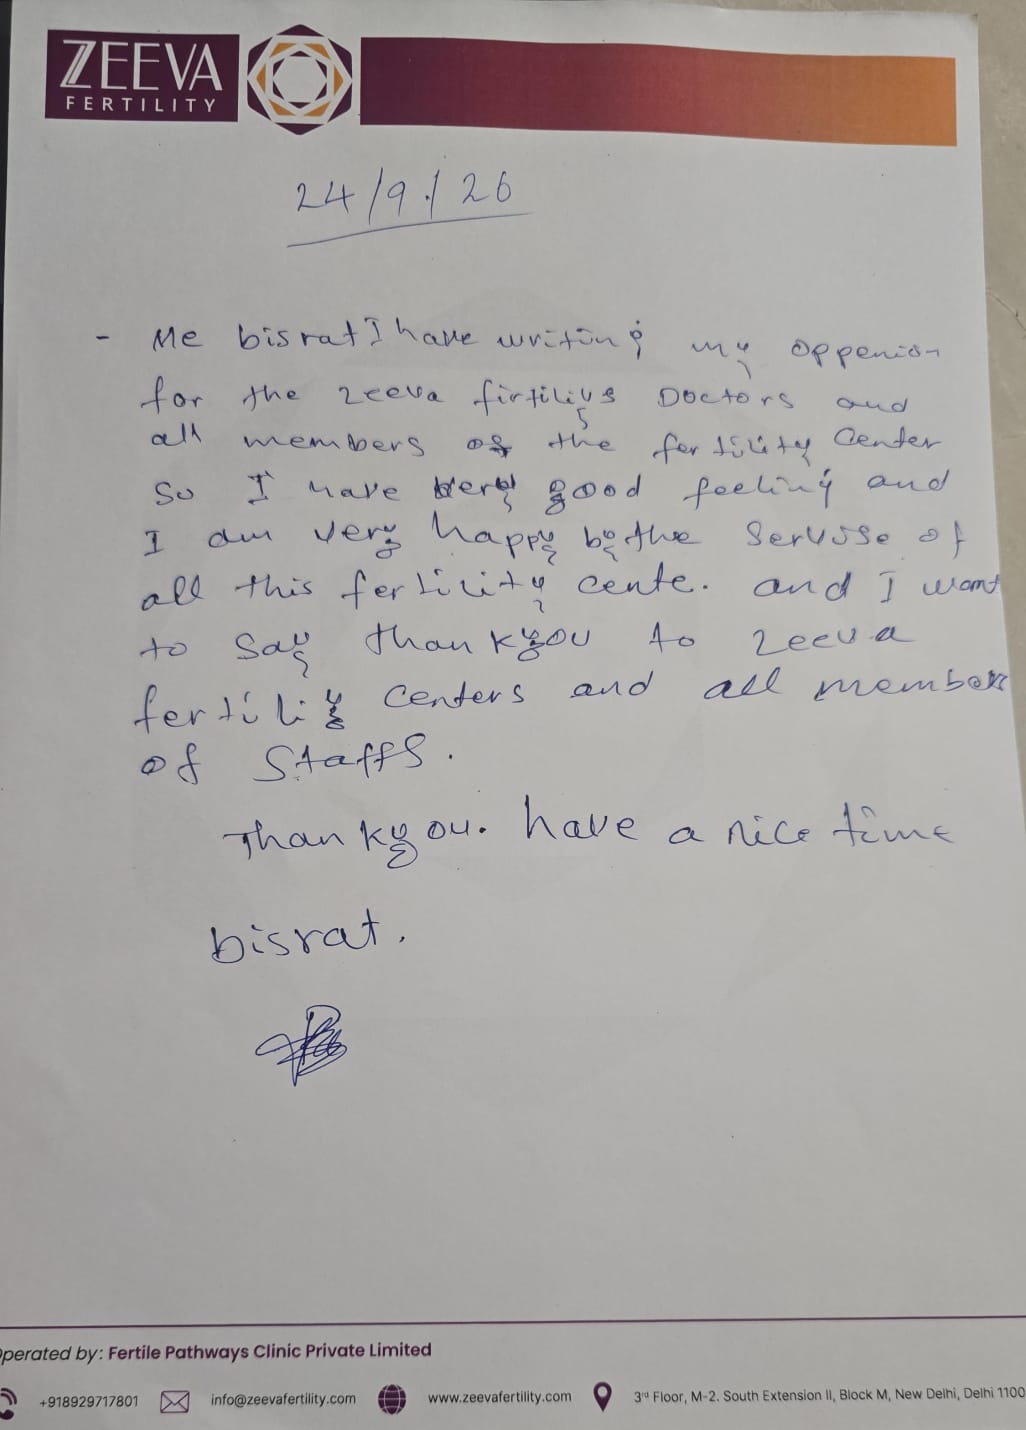 ZEEVA
FERTILITY
24/9/26
- Me bisrat I have writing my oppenion
for the zeeva firtiliys Doctors and
all members of the fertility Center
So I have very good feeling and
I am very happy by the Servise of
all this fertility cente. and I want
to say thankyou to zeeva
fertiliy Centers and all members
of Staffs.
Thankyou. have a nice time
bisrat.
Operated by: Fertile Pathways Clinic Private Limited
+918929717801 info@zeevafertility.com www.zeevafertility.com 3rd Floor, M-2. South Extension II, Block M, New Delhi, Delhi 1100